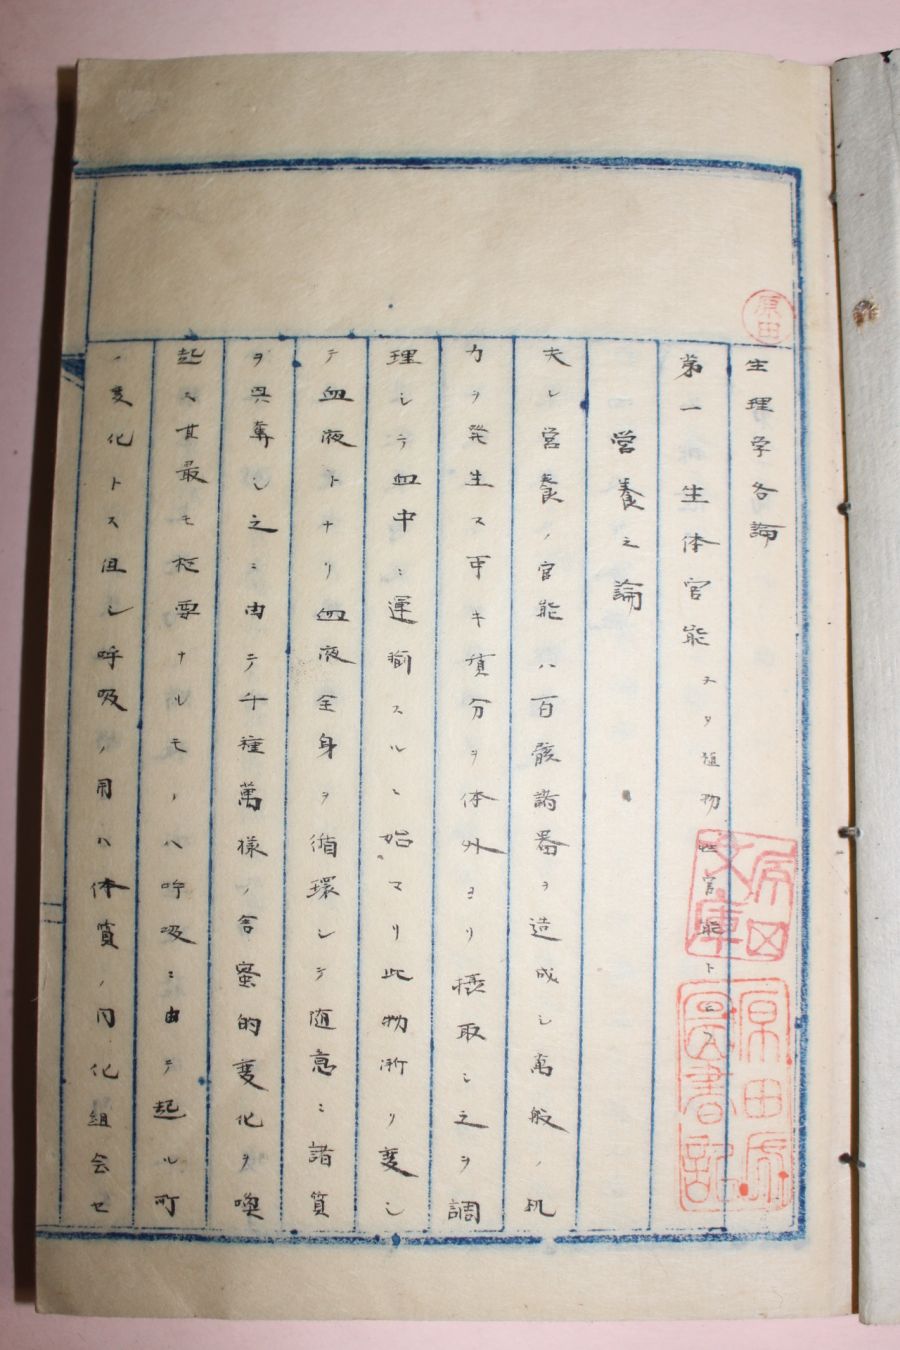 生理学各論
第一生体官能 又タ植物性官能ト云フ
営養之論
夫レ営養ノ官能ハ百骸諸器ヲ造成シ萬般ノ机
力ヲ発生ス可キ質分ヲ体外ヨリ摂取シ之ヲ調
理シテ血中ニ運輸スルニ始マリ此物漸リ変シ
テ血液トナリ血液全身ヲ循環シテ随意ニ諸質
ヲ與奪シ之ニ由テ千種萬様ノ舎蜜的変化ヲ喚
起ス其最モ枢要ナルモノハ呼吸ニ由テ起ル所
ノ変化トス且シ呼吸ノ用ハ体質ノ内化組会セ
原田
原田
文庫